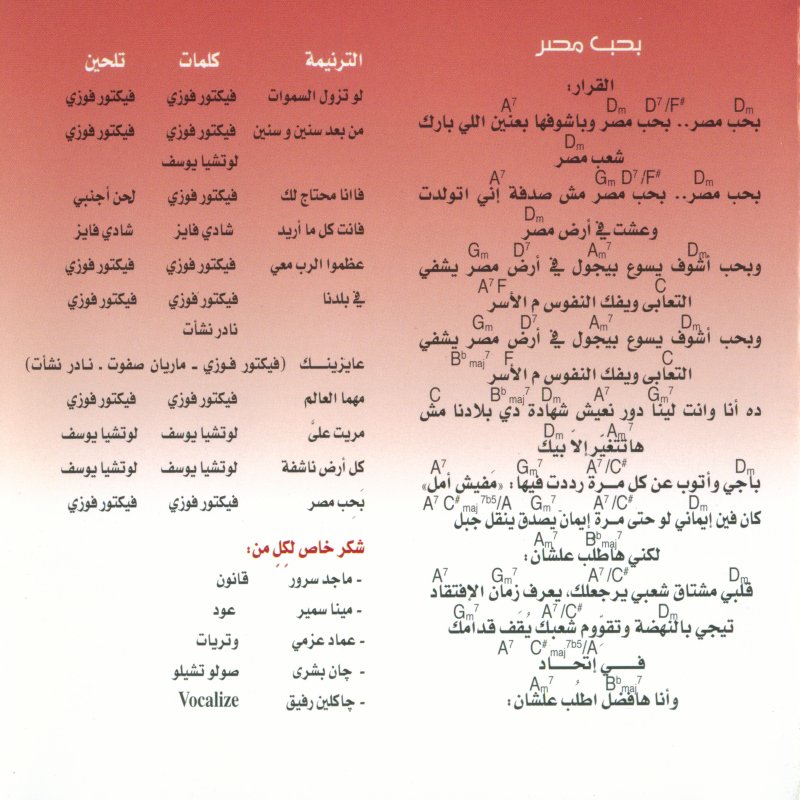 بحب مصر
القرار:
Dm D7/F# Dm A7
بحب مصر.. بحب مصر وباشوفها بعنين اللي بارك
Dm
شعب مصر
Dm Gm D7/F# A7
بحب مصر.. بحب مصر مش صدفة إني اتولدت
Dm
وعشت في أرض مصر
Dm Am7 D7 Gm
وبحب أشوف يسوع بيجول في أرض مصر يشفي
C F A7
التعابى ويفك النفوس م الأسر
Dm Am7 D7 Gm
وبحب أشوف يسوع بيجول في أرض مصر يشفي
C F Bb maj7
التعابى ويفك النفوس م الأسر
Gm7 A7 Dm Bb maj7 C
ده أنا وانت لينا دور نعيش شهادة دي بلادنا مش
Am7 Dm
هاتتغير إلا بيك
Dm A7/C# Gm7 A7
باجي وأتوب عن كل مرة رددت فيها: «مفيش أمل»
Dm A7/C# Gm7 C# maj7b5/A A7
كان فين إيماني لو حتى مرة إيمان يصدق ينقل جبل
Bb maj7 Am7
لكني هاطلب علشان:
Dm A7/C# Gm7 A7
قلبي مشتاق شعبي يرجعلك، يعرف زمان الإفتقاد
Dm A7/C# Gm7
تيجي بالنهضة وتقوم شعبك يقف قدامك
C# maj7b5/A A7
في إتحاد
Bb maj7 Am7
وأنا هافضل اطلب علشان:
الترنيمة كلمات تلحين
لو تزول السموات فيكتور فوزي فيكتور فوزي
من بعد سنين و سنين فيكتور فوزي فيكتور فوزي
لوتشيا يوسف
فاانا محتاج لك فيكتور فوزي لحن أجنبي
فانت كل ما أريد شادي فايز شادي فايز
عظموا الرب معي فيكتور فوزي فيكتور فوزي
في بلدنا فيكتور فوزي فيكتور فوزي
نادر نشأت
عايزينك (فيكتور فوزي - ماريان صفوت . نادر نشأت)
مهما العالم فيكتور فوزي فيكتور فوزي
مريت علىَّ لوتشيا يوسف لوتشيا يوسف
كل أرض ناشفة لوتشيا يوسف لوتشيا يوسف
بَحِب مصر فيكتور فوزي فيكتور فوزي
شكر خاص لكلٍ من:
- ماجد سرور قانون
- مينا سمير عود
- عماد عزمي وتريات
- چان بشرى صولو تشيلو
- چاكلين رفيق Vocalize